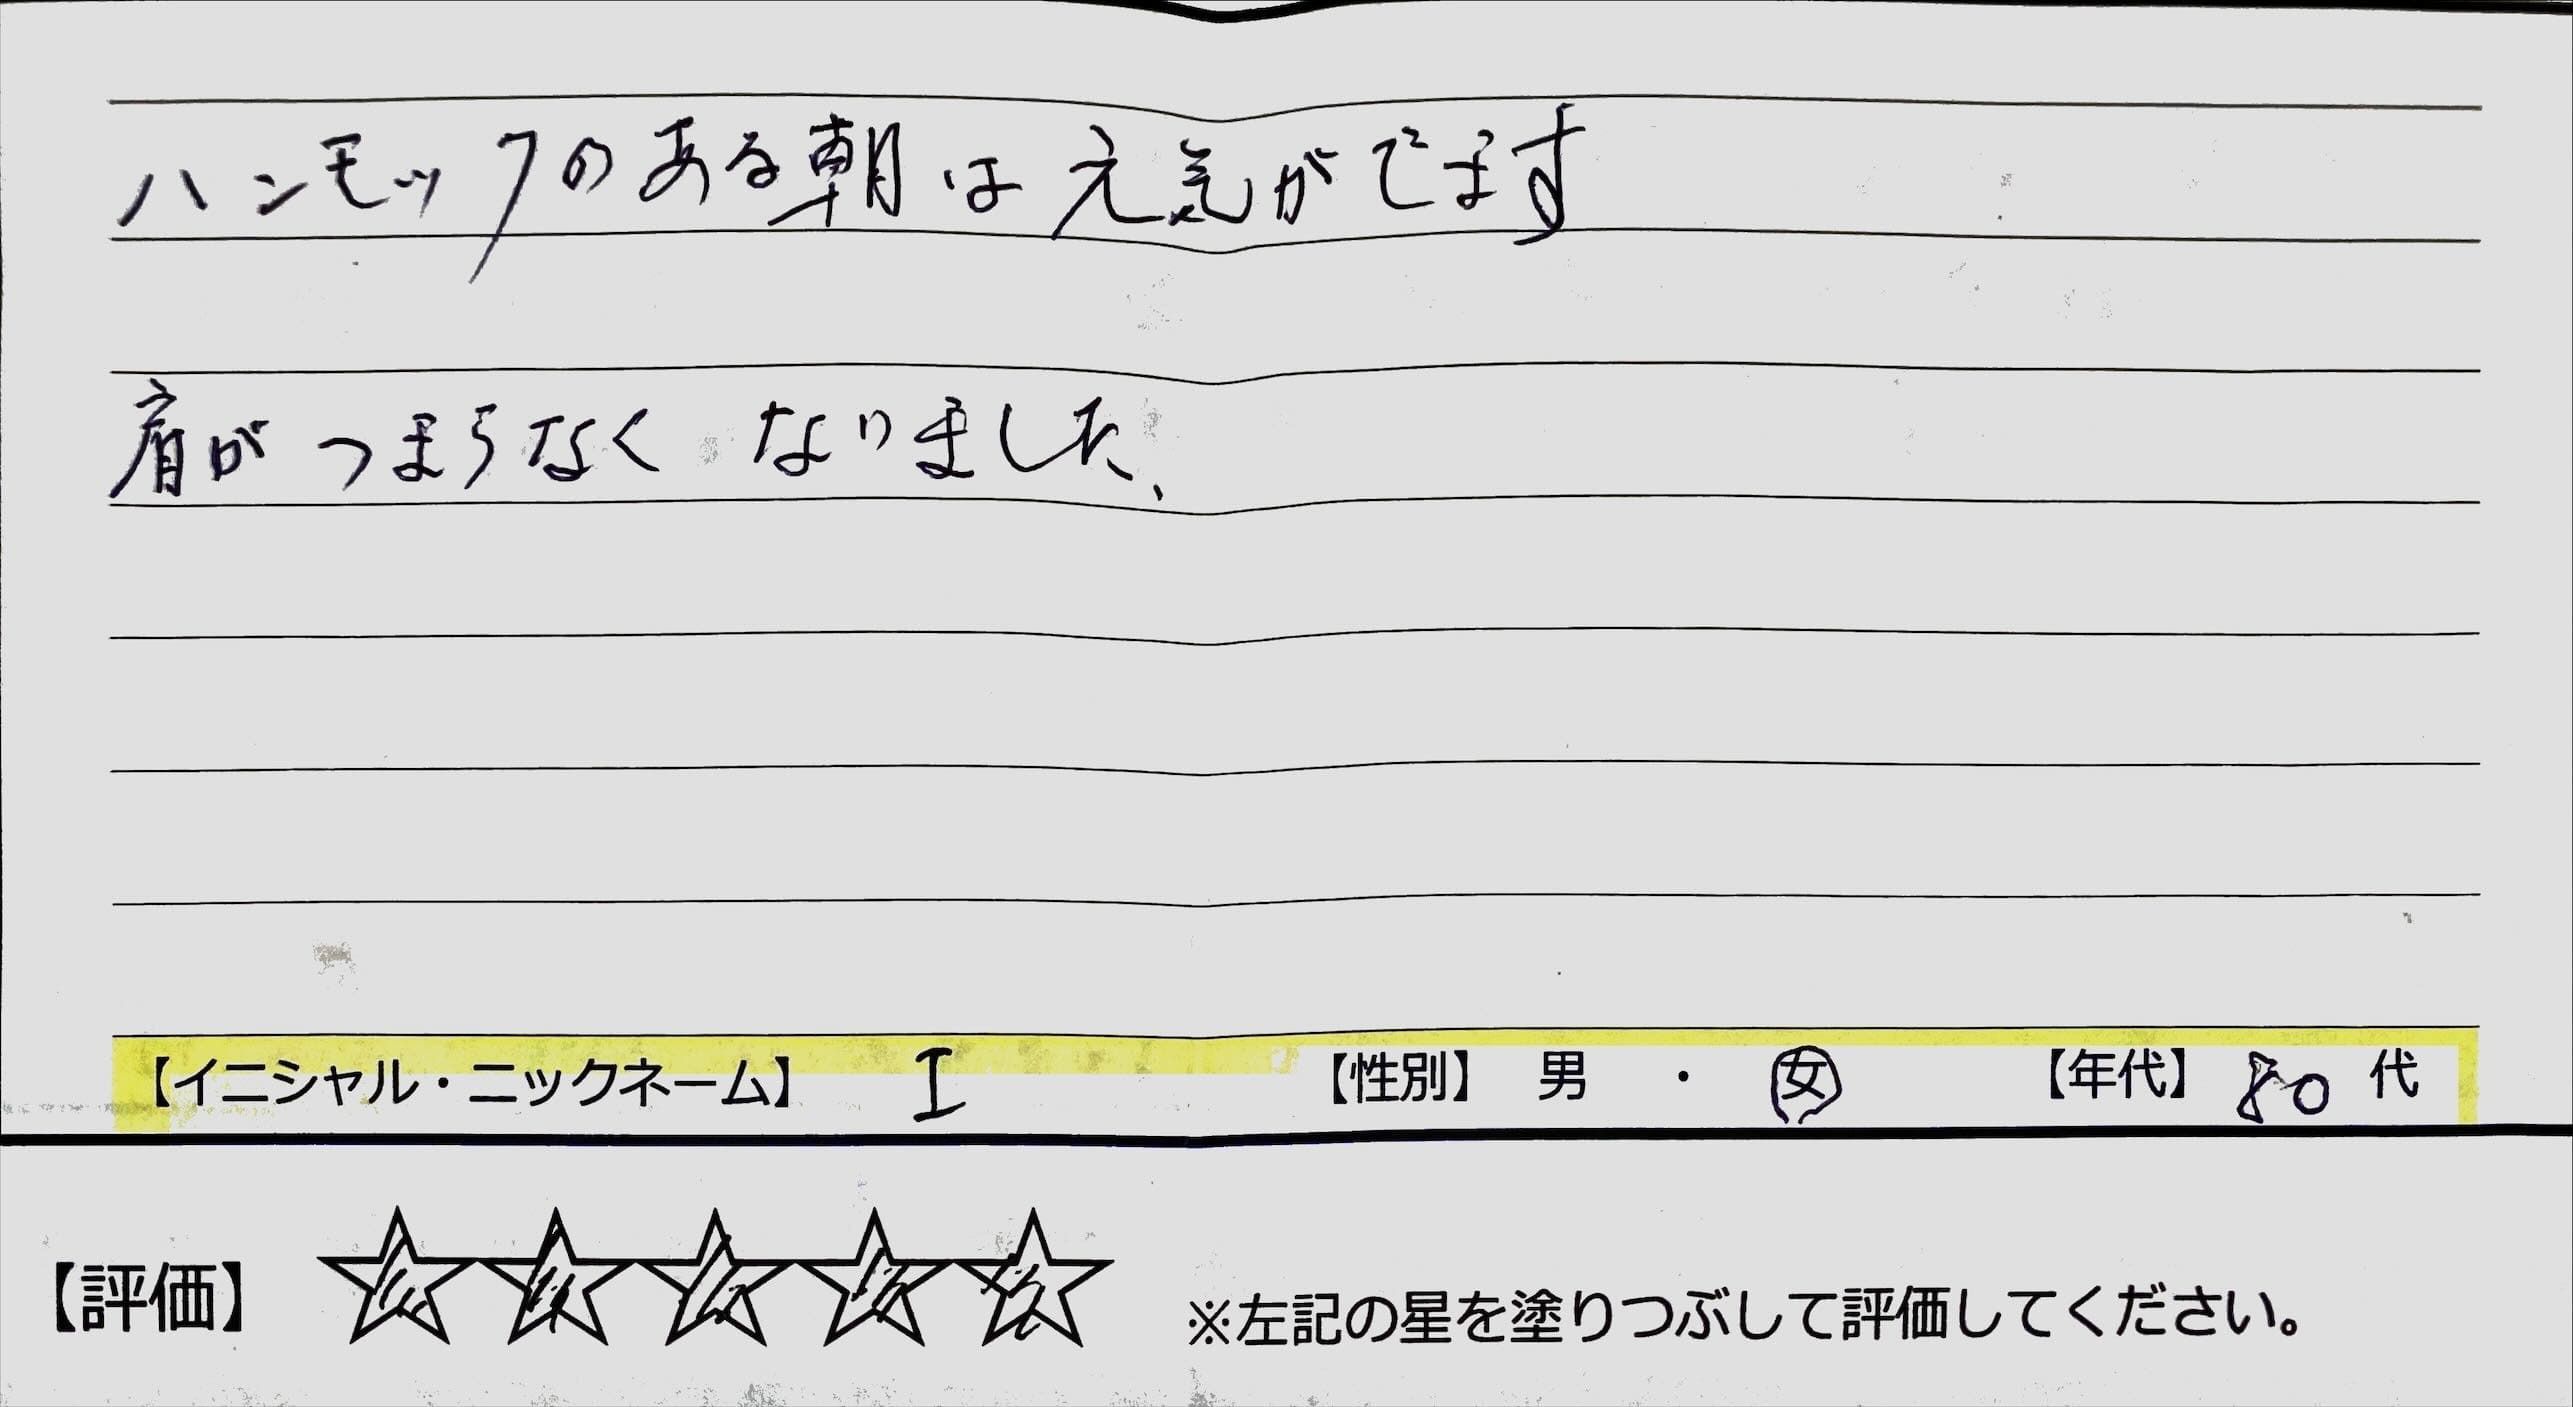 ハンモックのある朝は元気がでます
肩がつまらなくなりました、
【イニシャル・ニックネーム】 I 【性別】 男 ・ 女 【年代】 80 代
【評価】 ☆☆☆☆☆ ※左記の星を塗りつぶして評価してください。